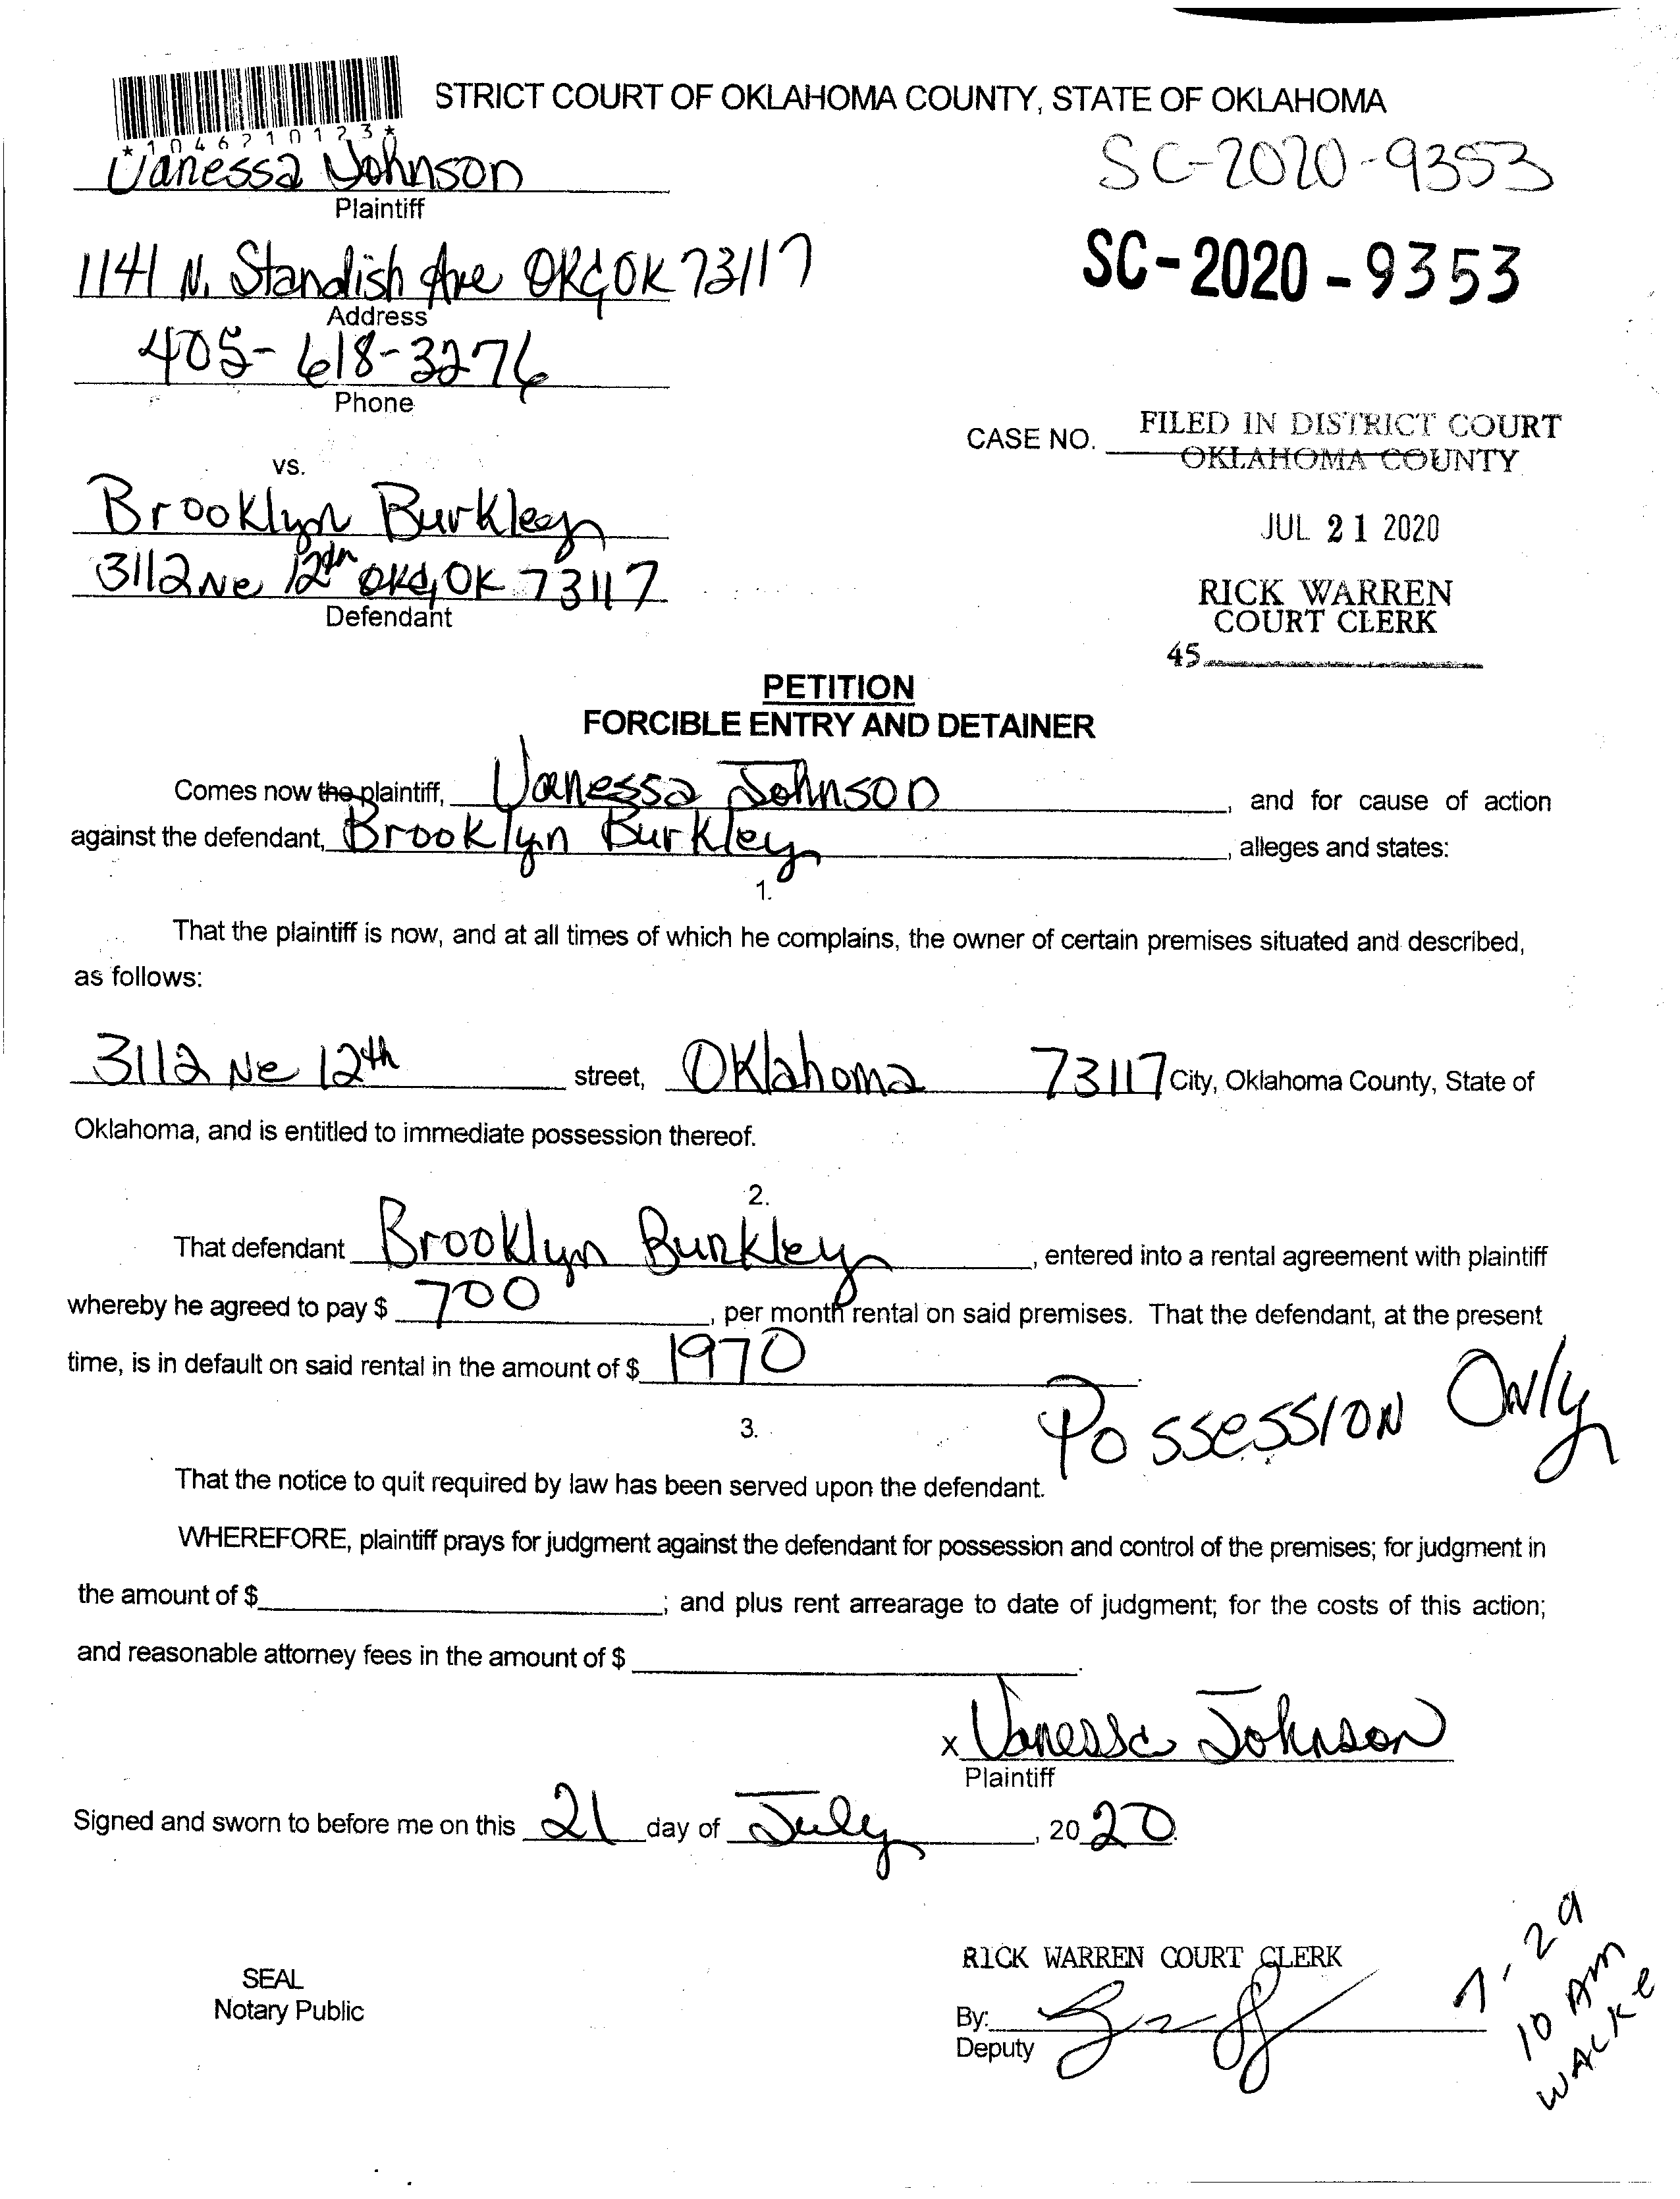 STRICT COURT OF OKLAHOMA COUNTY, STATE OF OKLAHOMA
*1046210123*
Vanessa Johnson
SC-2020-9353
Plaintiff
1141 N. Standish Ave OKC, OK 73117
SC-2020-9353
Address
405-618-3276
Phone
CASE NO.
FILED IN DISTRICT COURT
OKLAHOMA COUNTY
vs.
Brooklyn Burkley
JUL 21 2020
3112 Ne 12th OKC, OK 73117
Defendant
RICK WARREN
COURT CLERK
45
PETITION
FORCIBLE ENTRY AND DETAINER
Comes now the plaintiff, Vanessa Johnson, and for cause of action
against the defendant, Brooklyn Burkley, alleges and states:
1.
That the plaintiff is now, and at all times of which he complains, the owner of certain premises situated and described,
as follows:
3112 Ne 12th street, Oklahoma 73117 City, Oklahoma County, State of
Oklahoma, and is entitled to immediate possession thereof.
2.
That defendant Brooklyn Burkley, entered into a rental agreement with plaintiff
whereby he agreed to pay $ 700, per month rental on said premises. That the defendant, at the present
time, is in default on said rental in the amount of $ 1970.
Possession Only
3.
That the notice to quit required by law has been served upon the defendant.
WHEREFORE, plaintiff prays for judgment against the defendant for possession and control of the premises; for judgment in
the amount of $; and plus rent arrearage to date of judgment; for the costs of this action;
and reasonable attorney fees in the amount of $.
x Vanessa Johnson
Plaintiff
Signed and sworn to before me on this 21 day of July, 2020.
SEAL
Notary Public
RICK WARREN COURT CLERK
By:
Deputy
7-29
10 AM
WACKE